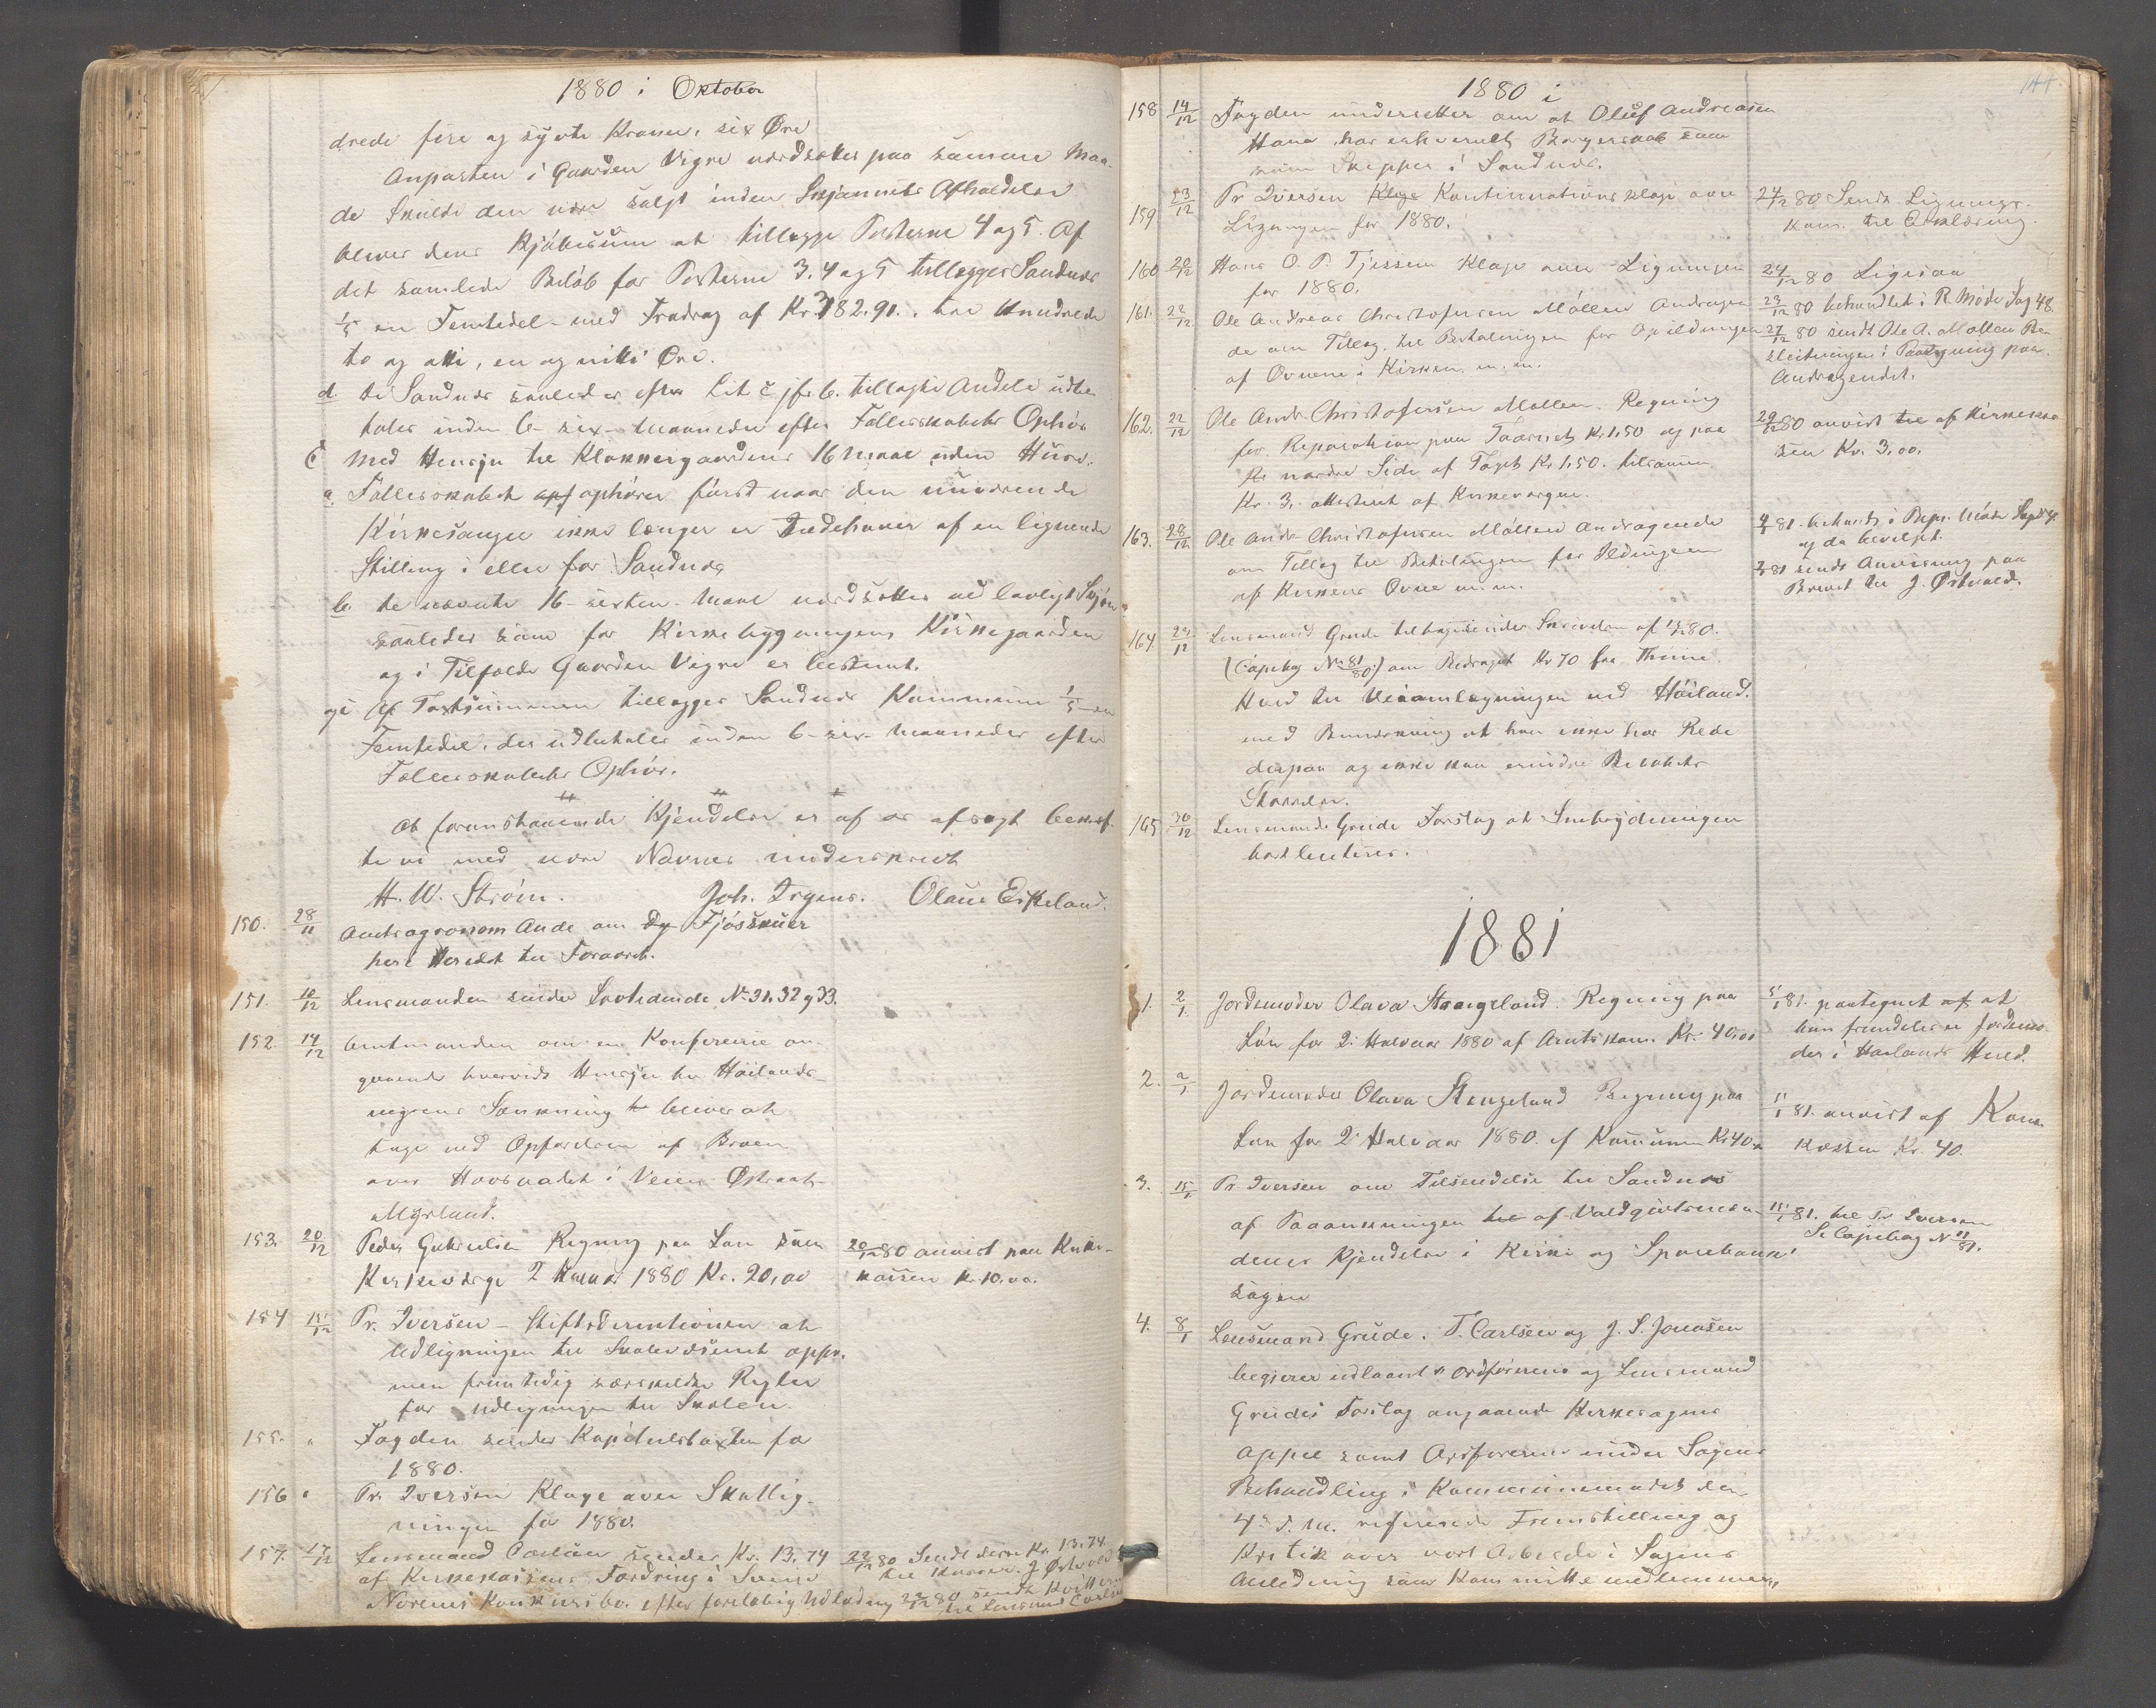 1880 i Oktober
drede fire og syvti Kroner, sex Øre
Anparten i Gaarden Vigre værdsættes paa samme Maa-
de Skulde den være solgt inden Skjønnets Afholdelse
bliver dens Kjøbesum at tillægge Posterne 4 og 5. Af
det samlede Beløb for Posterne 3, 4 og 5 tillægges Sandnes
1/5 en Femtedel med Fradrag af Kr. 382,91., tre Hundrede
to og otti, en og nitti Øre.
d. de Sandnes saaledes efter Lit c jfr b. tillagte Andele udbe
tales inden 6- sex- Maaneder efter Fællesskabets Ophør
C Med Hensyn til Klokkergaardens 16 Maal uden Huse.
a. Fællesskabet ophører først naar den nuværende
Kirkesanger ikke længer er Indehaver af en lignende
Stilling i eller for Sandnes
b. de nævnte 16- sexten- Maal værdsættes ved lovligt Skjøn
saaledes som for Kirkebygningen Kirkegaarden
og i Tilfælde Gaarden Vigre er bestemt.
og c Af Taxtsummen tillægges Sandnes Kommune 1/5 en
Femtedel, der udbetales inden 6- sex- Maaneder efter
Fællesskabets Ophør.
At foranstaaende Kjendelse er af os afsagt bekræf-
te vi med vore Navnes underskrift
H. W. Strøm. Joh. Irgens. Olaus Eikeland.
150. 28/11 Amtsagronom Aude om Fjøsskuer
her i Heredet til Foraaret.
151. 10/12 Lensmanden sender Lovtidende No 31, 32 og 33.
152. 14/12 Amtmanden om en Konference an-
gaaende hvorvidt Hensyn til Høilands-
Sænkning bliver at
tage ved Opførelsen af Broen
over Hovsvadet i Veien Østraat-
Myrland.
153. 20/12 Peder Gabrielsen Regning paa Løn som
Kirkeværge 2 Halvaar 1880 Kr. 20,00
20/12 80 anvist paa Kirke-
kassen Kr. 10.00.
154 15/12 Pr. Iversen - Stiftsdirektionen at
Udligningen til Skolevæsenet appr.
men fremtidig særskildte Regler
for udligningen til Skolen.
155. " Fogden sender Kapitelstaxten for
1880.
156 " Pr. Iversen Klage over Skatlig-
ningen for 1880.
157. 17/12 Lensmand Carlsen sender Kr. 13.74
af Kirkekassens Fordring i Svend
Norems Konkursbo. efter foreløbig Udlodning
22/12 80 Sendt disse Kr. 13.74
til Kasser. J. Østvold
22/12 80 sendt Kvitteri
til Lensmand Carlsen
144
1880 i
158 14/12 Fogden underretter om at Oluf Andreasen
Hana har erhvervet Borgerskab som
som Skipper i Sandnes.
159 23/12 Pr Iversen Klage Kontinuationsklage over
Ligningen for 1880.
24/12 80 Sendt Lignings-
kom. til Erklæring.
160 20/12 Hans O. P. Tjessem Klage over Ligningen
for 1880.
24/12 80 Ligesaa
161. 22/12 Ole Andreas Christofersen Møllen Andragen
de om Tillæg til Betalingen for Opildningen
af Ovnene i Kirken m.m.
23/12 80 behandlet i R. Møde Sag 48.
27/12 80 sendt Ole A. Møllen Be-
slutningen i Paategning paa
Andragendet.
162. 22/12 Ole Andr. Christofersen Møllen. Regning
for Reparation paa Taarnet Kr 1,50 og paa
Kr nordre Side af Taget Kr 1,50. tilsammen
Kr. 3, attesteret af Kirkeværgen.
29/12 80 anvist til af Kirkekas
sen Kr. 3.00.
163. 28/12 Ole Andr. Christofersen Møllen Andragende
om Tillæg til Betalingen for Ildningen
af Kirkens Ovne m.m.
4/1 81. behandl. i Repr. Møde
og da bevilget.
81 sendt Anvisning paa
Brevet til J. Østvold.
164. 29/12 Lensmand Grude tilbagesender Skrivelsen af 80.
(Copibog No 81/80) om Bidraget Kr 70 fra Thime
Hved til Veiomlægningen ved Høiland.
med Bemærkning at han ikke har Rede
derpaa og ikke kan erindre Beløbets
Størrelse.
165 30/12 Lensmand Grude Forslag at Snebrydningen
bortliciteres.
1881
1. 2/1. Jordemoder Olava Stangeland. Regning paa
Løn for 2. Halvaar 1880 af Amtskom. Kr. 40,00
5/1 81. paategnet af at
hun fremdeles er Jordemo-
der i Høilands Hered.
2. 2/1 Jordemoder Olava Stangeland Regning paa
Løn for 2. Halvaar 1880. af Kommunen Kr 40
5/1 81. anvist af Kom.
Kassen Kr. 40.
3. 15/1 Pr. Iversen om Tilsendelse til Sandnes
af Paaankningen til af Voldgiftsmæn-
denes Kjendelse i Kirke og Sparebank-
sagen
15/1 81. til Pr Iversen
Se Copibog No 11/81.
4. 8/1 Lensmand Grude. T. Carlsen og J. S. Jonasen
begjærer udlaant Ordførerens og Lensmand
Grudes Forslag angaaende Kirkesagens
Appel samt Ordførerens under Sagens
Behandling i Kommunemødet den
4de d. M. refererede Fremstilling og
Kritik over vort Arbeide i Sagens
Anledning som Kommittemedlemmer,